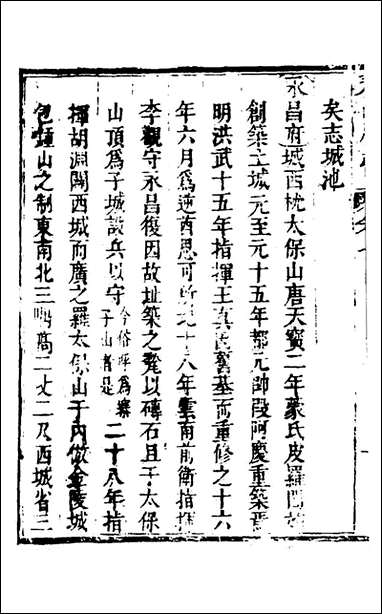 矣志城池
永昌府城西枕太保山唐天寶二年蒙氏皮羅閣
創築土城元至元十五年都元帥段阿慶重築焉
明洪武十五年指揮王真因舊基而重修之十六
年六月為逆酋思可所 十八年雲南前衛指揮
李觀守永昌復因故址築之甃以磚石且于太保
山頂爲子城設兵以守今俗呼爲寨子山者是二十八年指
揮胡淵闢西城而廣之羅太保山于內倣金陵城
包鍾山之制東南北三 高二丈二尺西城省三